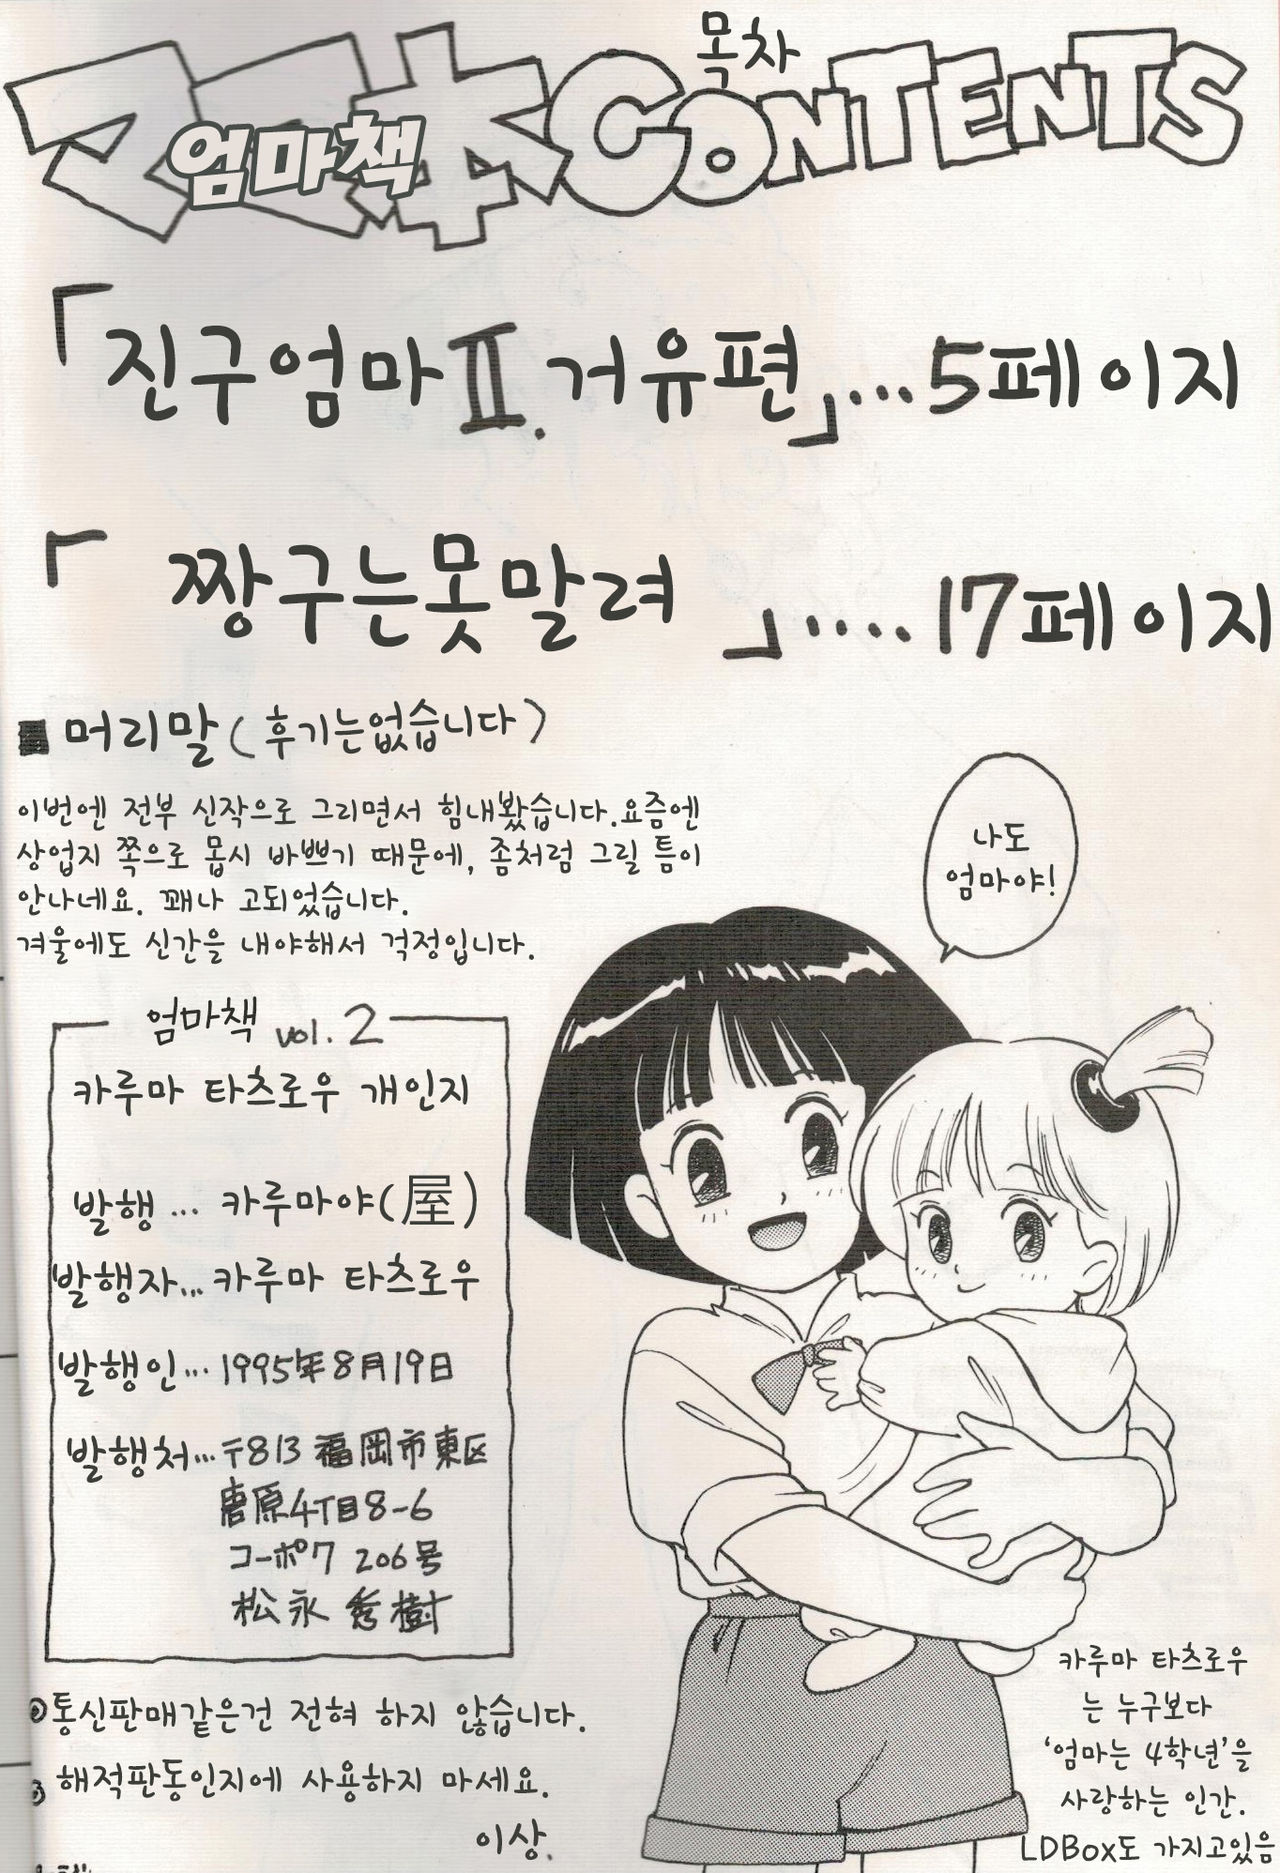 목차
ママ本 CONTENTS
엄마책
「진구엄마Ⅱ.거유편」…5페이지
「 짱구는못말려 」‥‥17페이지
■ 머리말(후기는없습니다)
이번엔 전부 신작으로 그리면서 힘내봤습니다.요즘엔
상업지 쪽으로 몹시 바쁘기 때문에, 좀처럼 그릴 틈이
안나네요. 꽤나 고되었습니다.
겨울에도 신간을 내야해서 걱정입니다.
나도
엄마야!
엄마책 vol.2
카루마 타츠로우 개인지
발행 … 카루마야(屋)
발행자… 카루마 타츠로우
발행인… 1995年8月19日
발행처…〒813 福岡市東区
唐原4丁目8-6
コーポワ 206号
松永 秀樹
통신판매같은건 전혀 하지 않습니다.
해적판동인지에 사용하지 마세요.
이상.
카루마 타츠로우
는 누구보다
'엄마는 4학년'을
사랑하는 인간.
LDBox도 가지고있음